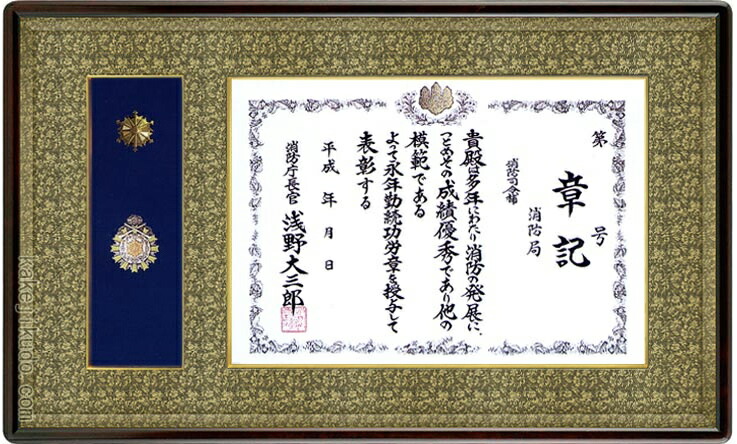 第　　　号
章記
消防局
消防司令補
貴殿は多年にわたり消防の発展に
つとめその成績優秀であり他の
模範である
よって永年勤続功労章を授与して
表彰する
平成　年　月　日
消防庁長官　浅野大三郎
wakeijuon.com